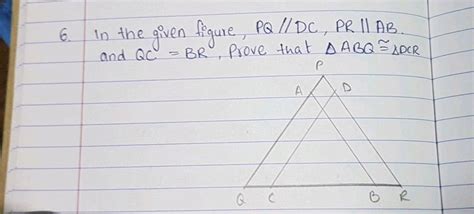 6. In the given figure, PQ // DC, PR || AB.
and QC = BR, Prove that △ ABQ ≅ △DCR
P
A D
Q C B R